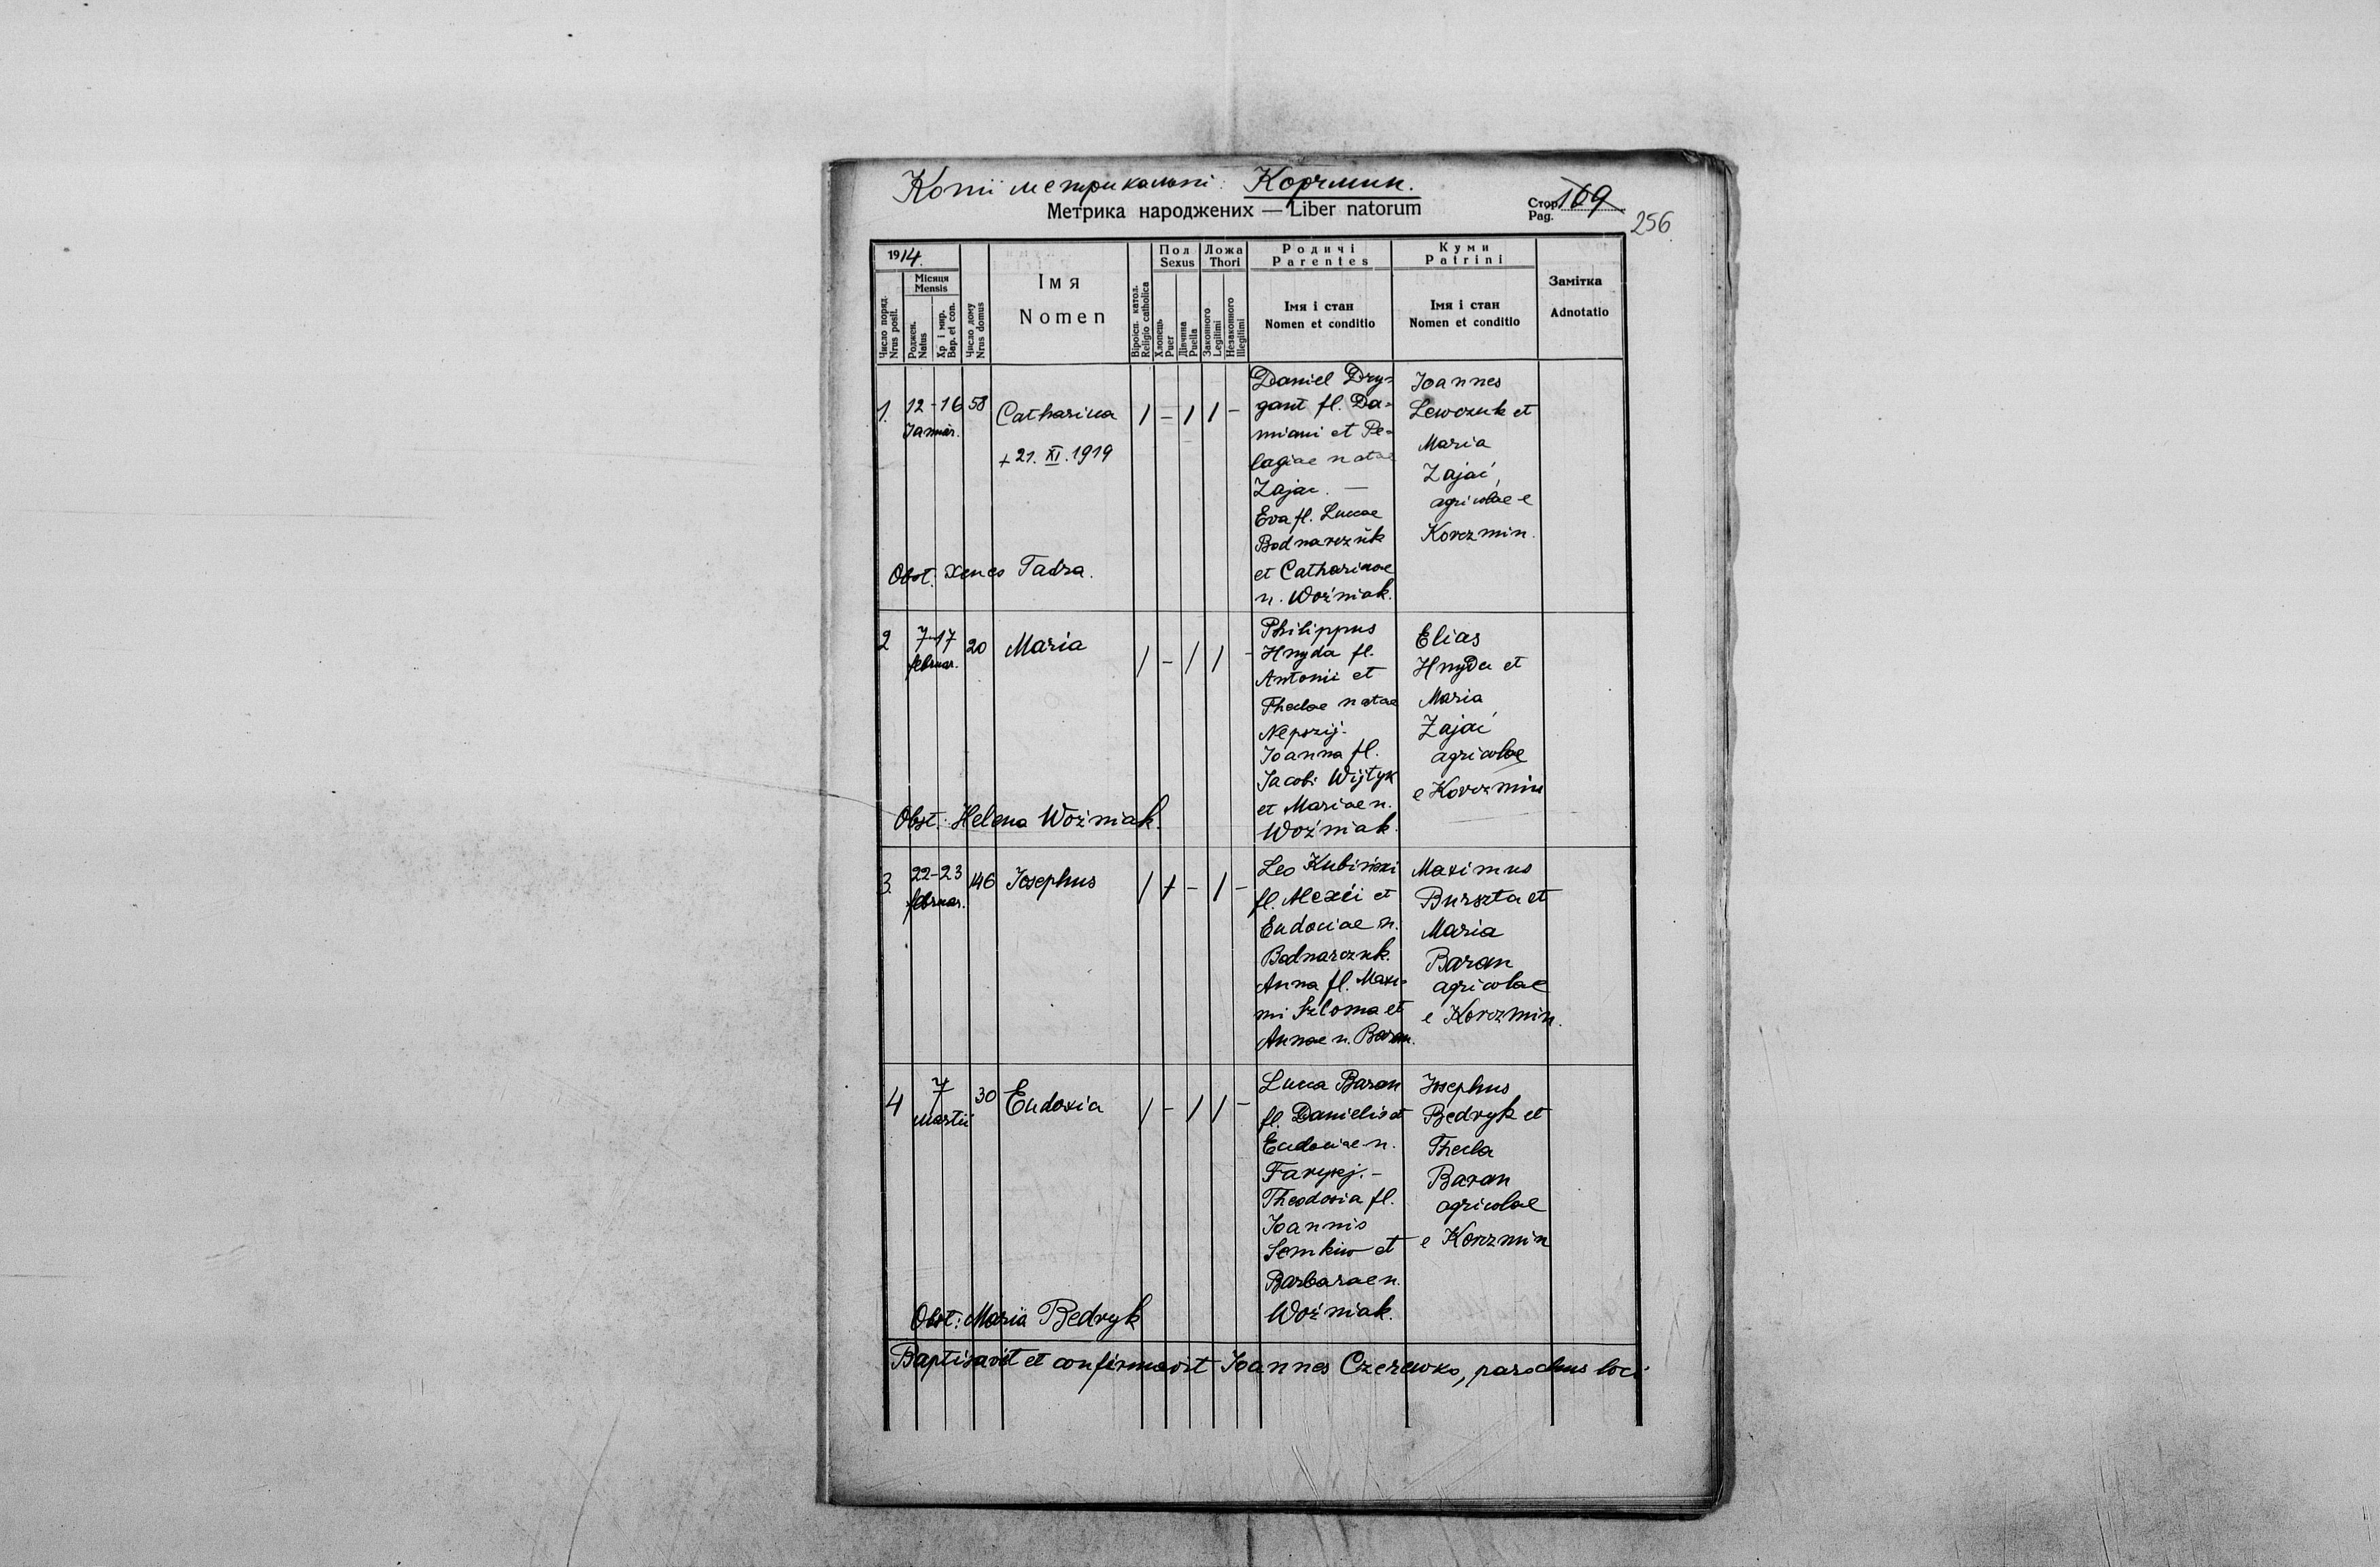 Копії метрикальні: Корчмин.
Метрика народжених — Liber natorum
Стор. 109
Pag.
256
1914.
Місяця
Mensis
Число поряд.
Nrus posit.
Роджен.
Natus
Хр і мир.
Bap. et con.
Число дому
Nrus domus
Імя
Nomen
Віроісп. катол.
Religio catholica
Пол
Sexus
Хлопець
Puer
Дівчина
Puella
Ложа
Thori
Законного
Legitimi
Незаконного
Illegitimi
Родичі
Parentes
Імя і стан
Nomen et conditio
Куми
Patrini
Імя і стан
Nomen et conditio
Замітка
Adnotatio
1. 12-16 58 Catharina 1 - 1 1 -
Januar.
+ 21. XI. 1919
Daniel Dry-
gant fl. Da-
miani et Pe-
lagiae natae
Zając. —
Eva fl. Lucae
Bodnarczuk
et Catharinae
n. Woźniak.
Joannes
Lewczuk et
Maria
Zająć,
agricolae e
Korczmin.
Obst. Tadra.
2 7-17 20 Maria 1 - 1 1 -
februar.
Philippus
Hnyda fl.
Antonii et
Theclae natae
Joanna fl.
Jacobi Wijtyk
et Mariae n.
Woźniak.
Elias
Hnyda et
Maria
Zająć
agricolae
e Korczmin
Obst: Helena Woźniak.
3. 22-23 146 Josephus 1 + - 1 -
februar.
Leo Kubiński
fl. Alexii et
Eudociae n.
Bodnarczuk.
Anna fl. Maxi-
mi Szloma et
Annae n. Baran.
Maximus
Burszta et
Maria
Baran
agricolae
e Korczmin.
4 7 30 Eudoxia 1 - 1 1 -
Martii
Luca Baran
fl. Danielis et
Eudociae n.
Farysej. -
Theodosia fl.
Joannis
Semkiw et
Barbarae n.
Woźniak.
Josephus
Bedryk et
Thecla
Baran
agricolae
e Korczmin
Obst: Maria Bedryk
Baptisavit et confirmavit Joannes Czerewko, parochus loci